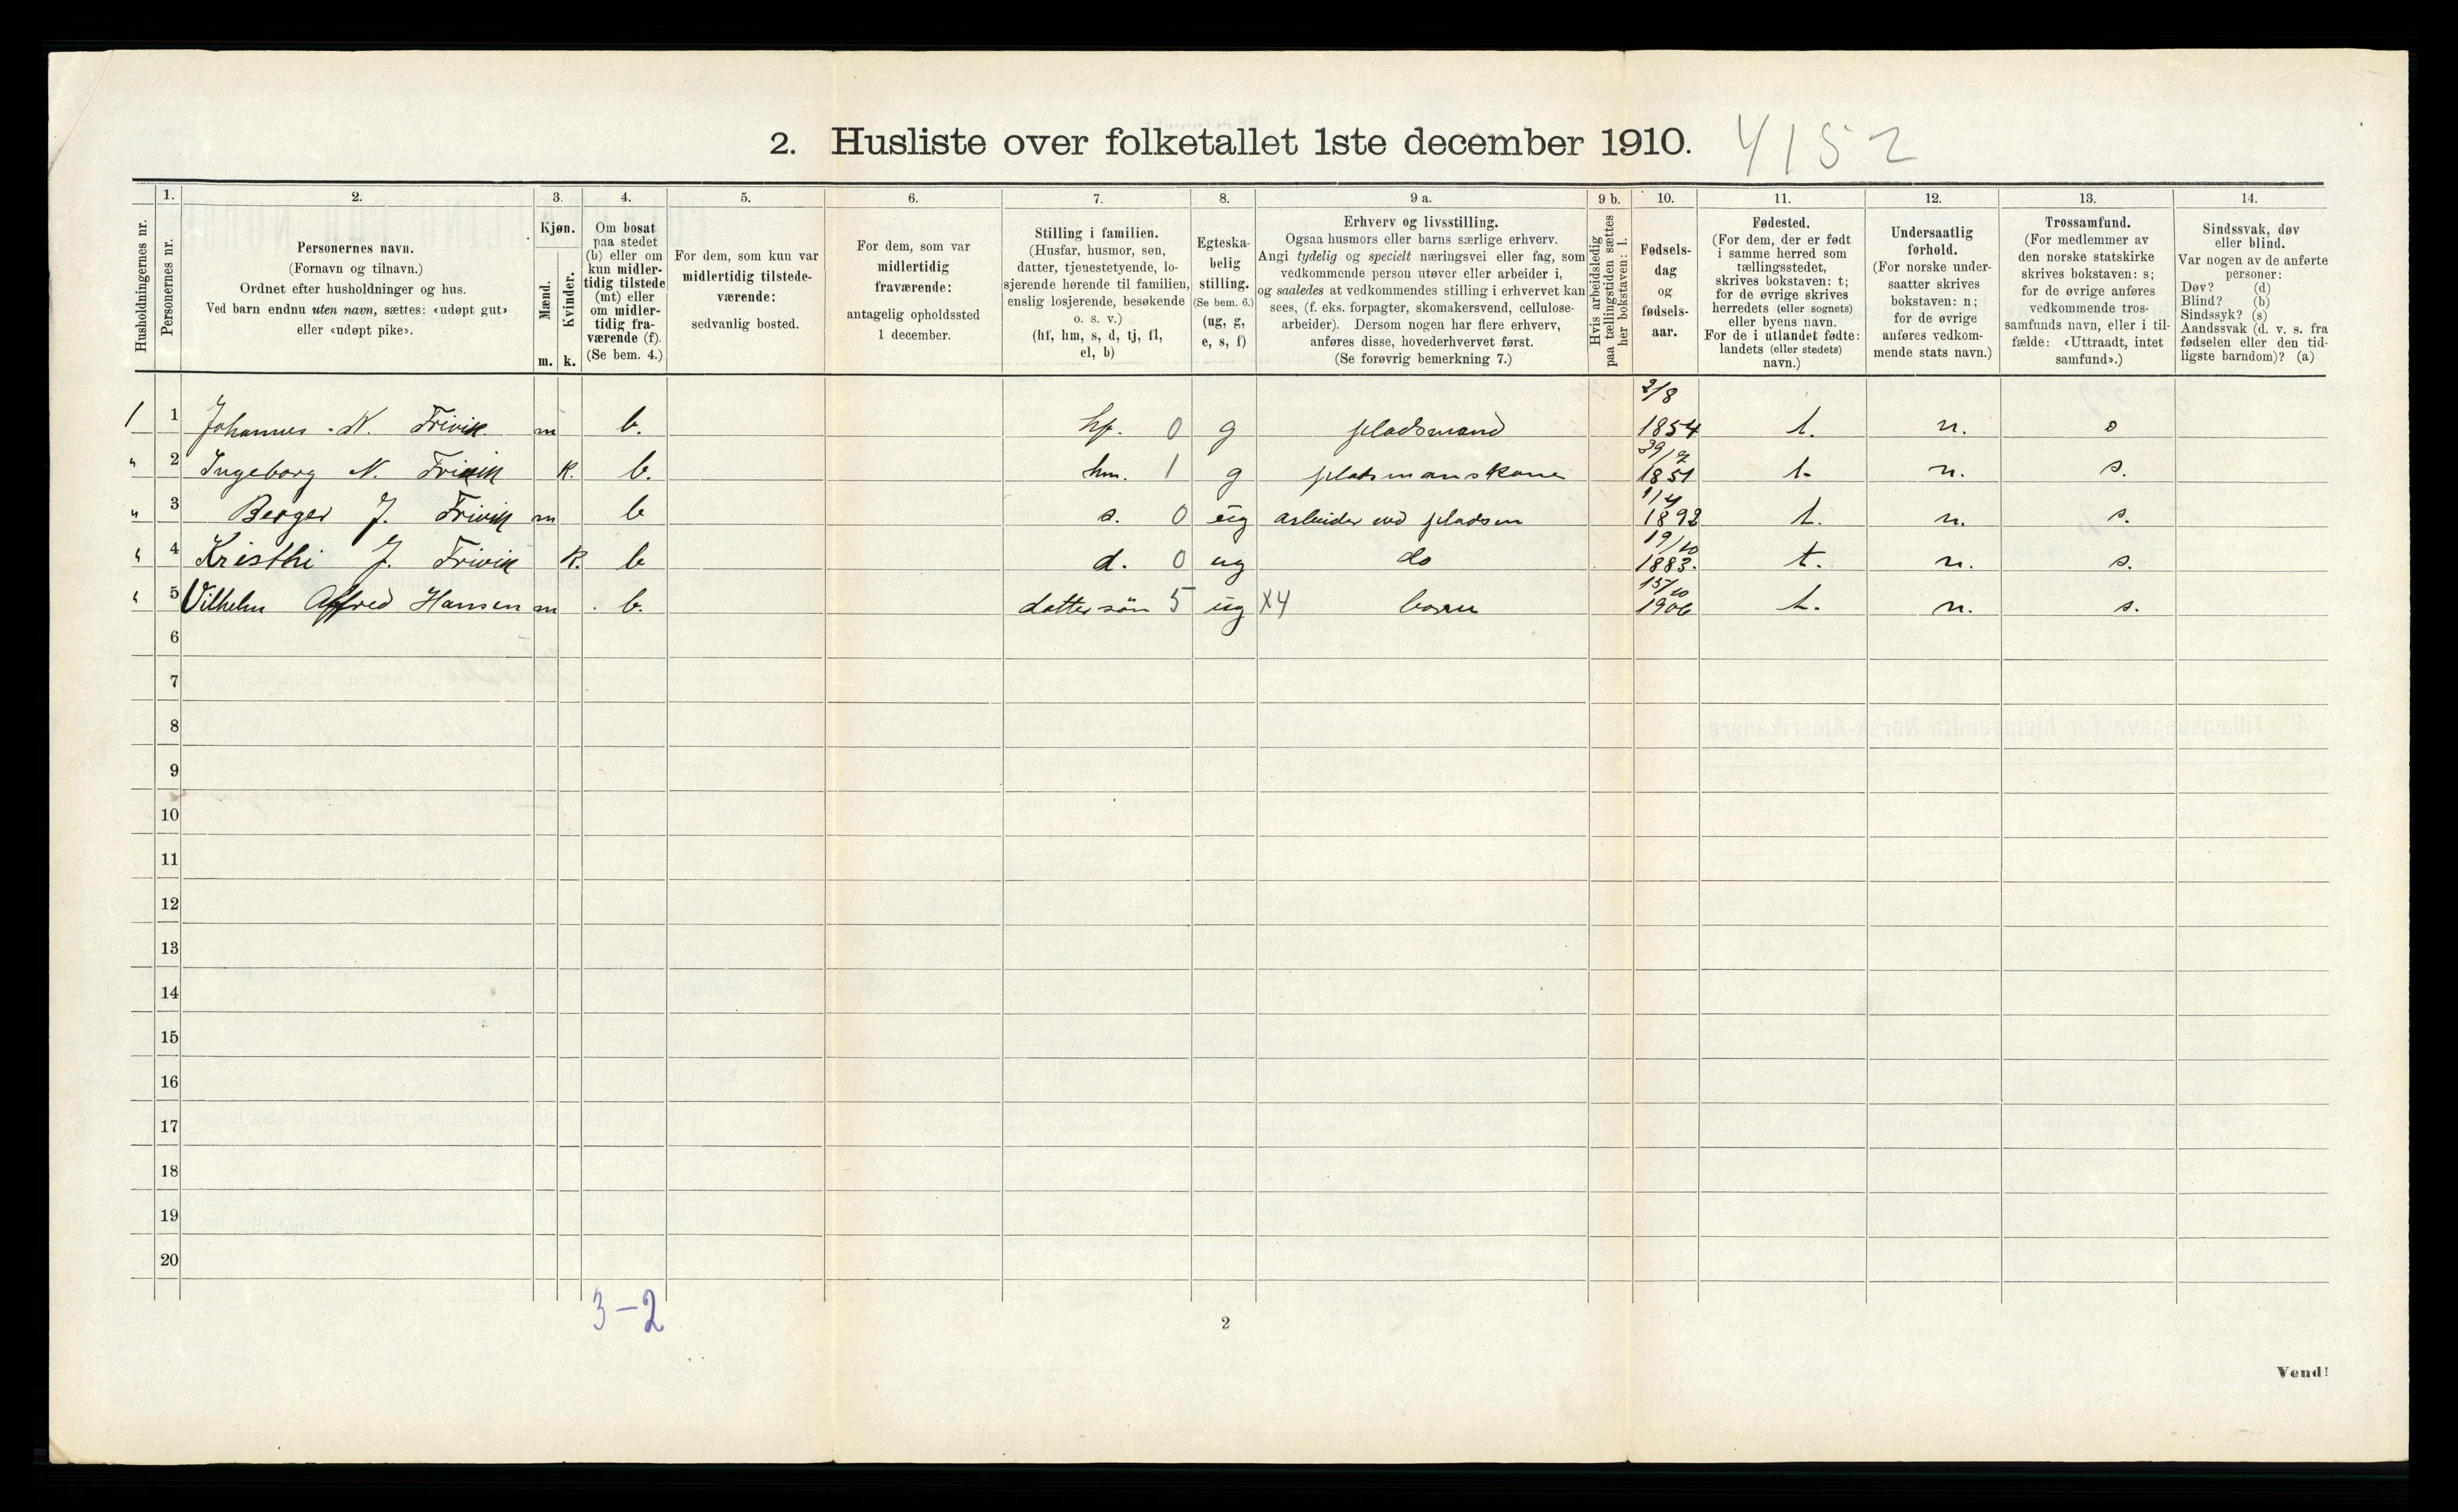 2. Husliste over folketallet 1ste december 1910. 4152
Husholdningernes nr.
1. Personernes nr.
2. Personernes navn.
(Fornavn og tilnavn.)
Ordnet efter husholdninger og hus.
Ved barn endnu uten navn, sættes: «udøpt gut»
eller «udøpt pike».
3. Kjøn.
Mænd. m.
Kvinder. k.
4. Om bosat
paa stedet
(b) eller om
kun midler-
tidig tilstede
(mt) eller
om midler-
tidig fra-
værende (f).
(Se bem. 4.)
5. For dem, som kun var
midlertidig tilstede-
værende:
sedvanlig bosted.
6. For dem, som var
midlertidig
fraværende:
antagelig opholdssted
1 december.
7. Stilling i familien.
(Husfar, husmor, søn,
datter, tjenestetyende, lo-
sjerende hørende til familien,
enslig losjerende, besøkende
o. s. v.)
(hf, hm, s, d, tj, fl,
el, b)
8. Egteska-
belig
stilling.
(Se bem. 6.)
(ug, g,
e, s, f)
9 a. Erhverv og livsstilling.
Ogsaa husmors eller barns særlige erhverv.
Angi tydelig og specielt næringsvei eller fag, som
vedkommende person utøver eller arbeider i,
og saaledes at vedkommendes stilling i erhvervet kan
sees, (f. eks. forpagter, skomakersvend, cellulose-
arbeider). Dersom nogen har flere erhverv,
anføres disse, hovederhvervet først.
(Se forøvrig bemerkning 7.)
9 b. Hvis arbeidsledig
paa tællingstiden sættes
her bokstaven: l.
10. Fødsels-
dag
og
fødsels-
aar.
11. Fødested.
(For dem, der er født
i samme herred som
tællingsstedet,
skrives bokstaven: t;
for de øvrige skrives
herredets (eller sognets)
eller byens navn.
For de i utlandet fødte:
landets (eller stedets)
navn.)
12. Undersaatlig
forhold.
(For norske under-
saatter skrives
bokstaven: n;
for de øvrige
anføres vedkom-
mende stats navn.)
13. Trossamfund.
(For medlemmer av
den norske statskirke
skrives bokstaven: s;
for de øvrige anføres
vedkommende tros-
samfunds navn, eller i til-
fælde: «Uttraadt, intet
samfund».)
14. Sindssvak, døv
eller blind.
Var nogen av de anførte
personer:
Døv? (d)
Blind? (b)
Sindssyk? (s)
Aandssvak (d. v. s. fra
fødselen eller den tid-
ligste barndom)? (a)
1 1 Johannes N. Frivik m b. hf. 0 g pladsmand 2/8 1854 t. n. s
" 2 Ingeborg N. Frivik k. b. hm. 1 g pladsmanskone 1851 t. n. s.
" 3 Berger J. Frivik m b s. 0 ug arbeider ved pladsen 1/4 1892 t. n. s.
" 4 Kristhi J. Frivik k. b d. 0 ug do 19/10 1883. t. n. s.
" 5 Vilhelm Alfred Hansen m b. dattersön 5 ug X4 barn 15/10 1906 t. n. s.
6
7
8
9
10
11
12
13
14
15
16
17
18
19
20
3-2
2
Vend!